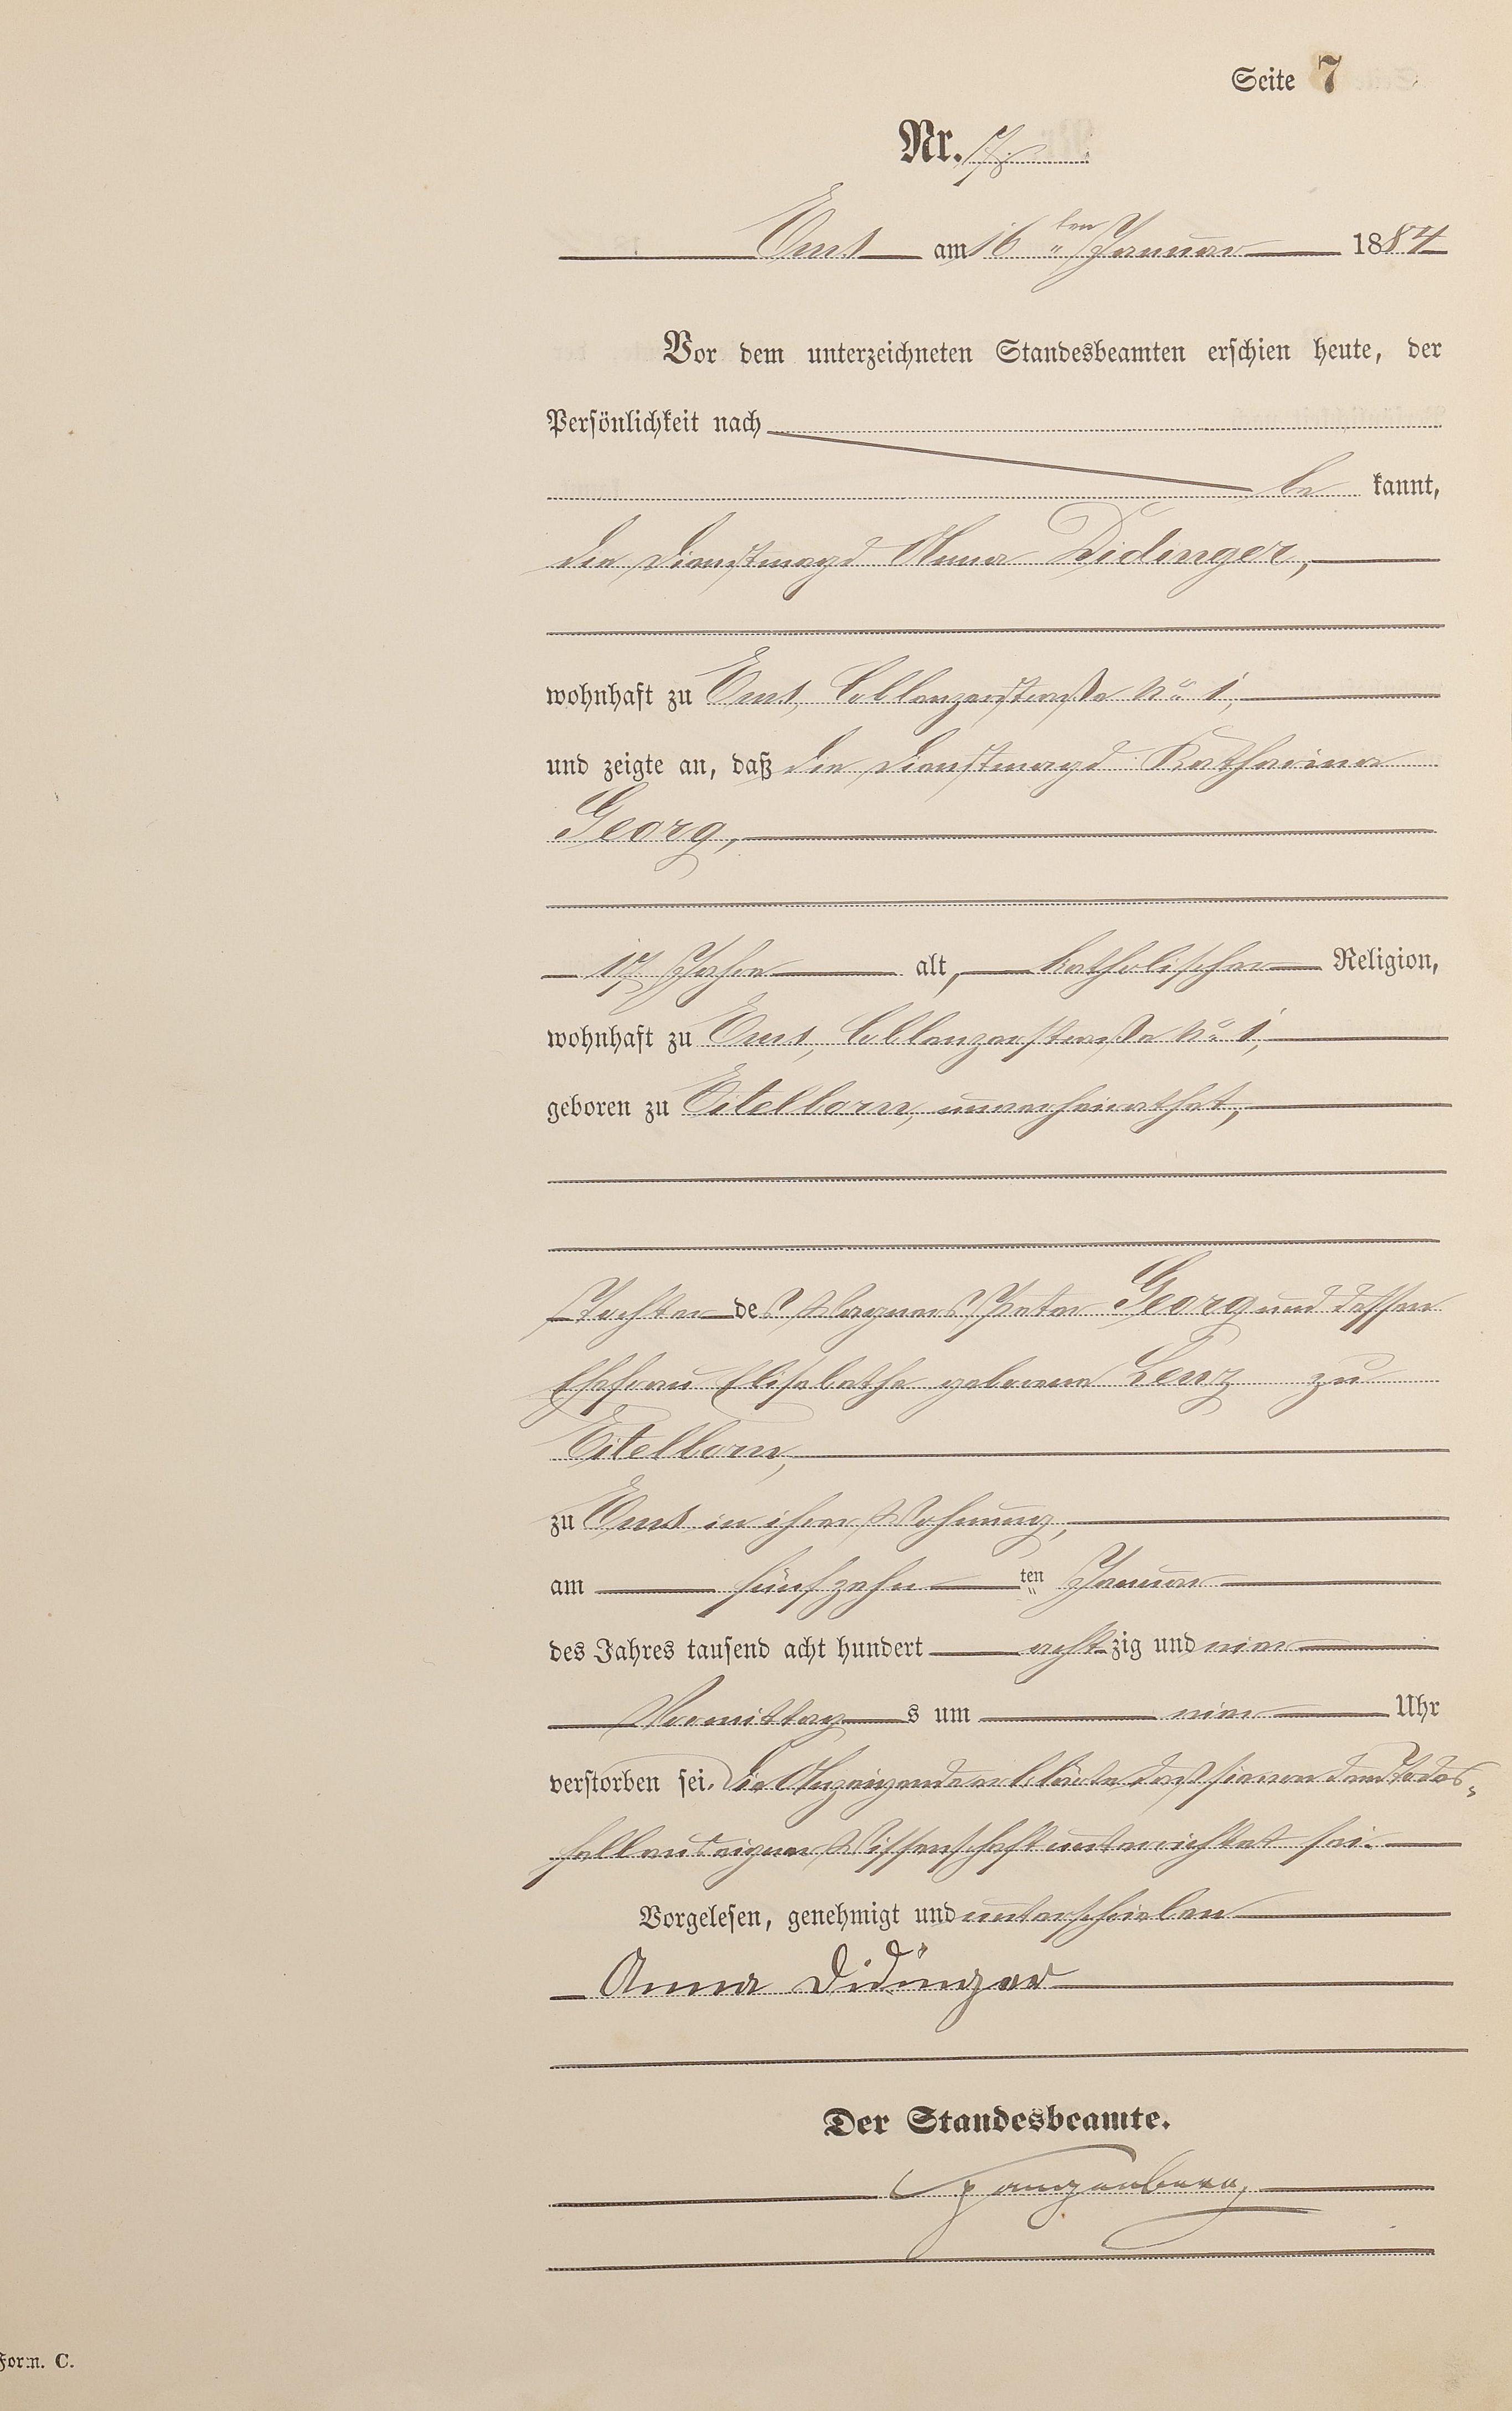 Seite 7
Nr.
Ems am 16 ten Januar 1884
Vor dem unterzeichneten Standesbeamten erschien heute, der
Persönlichkeit nach
be kannt,
die Dienstmagd Anna Didinger,
wohnhaft zu Ems, Coblenzerstraße No 1,
und zeigte an, daß die Dienstmagd Katharina
Georg,
17 Jahre alt, katholischer Religion,
wohnhaft zu Ems, Coblenzerstraße No 1,
geboren zu Eitelborn, unverheirathet,
Tochter des Wagners Peter Georg und dessen
Ehefrau Elisabetha geborene Lenz zu
Eitelborn,
zu Ems in ihrer Wohnung,
am fünfzehn ten Januar
des Jahres tausend acht hundert acht zig und vier
Vormittag s um vier Uhr
verstorben sei. Die Anzeigende erklärte daß sie von dem Todes-
fall aus eigner Wissenschaft unterrichtet sei.
Vorgelesen, genehmigt und unterschrieben
Anna Didinger
Der Standesbeamte.
Form. C.